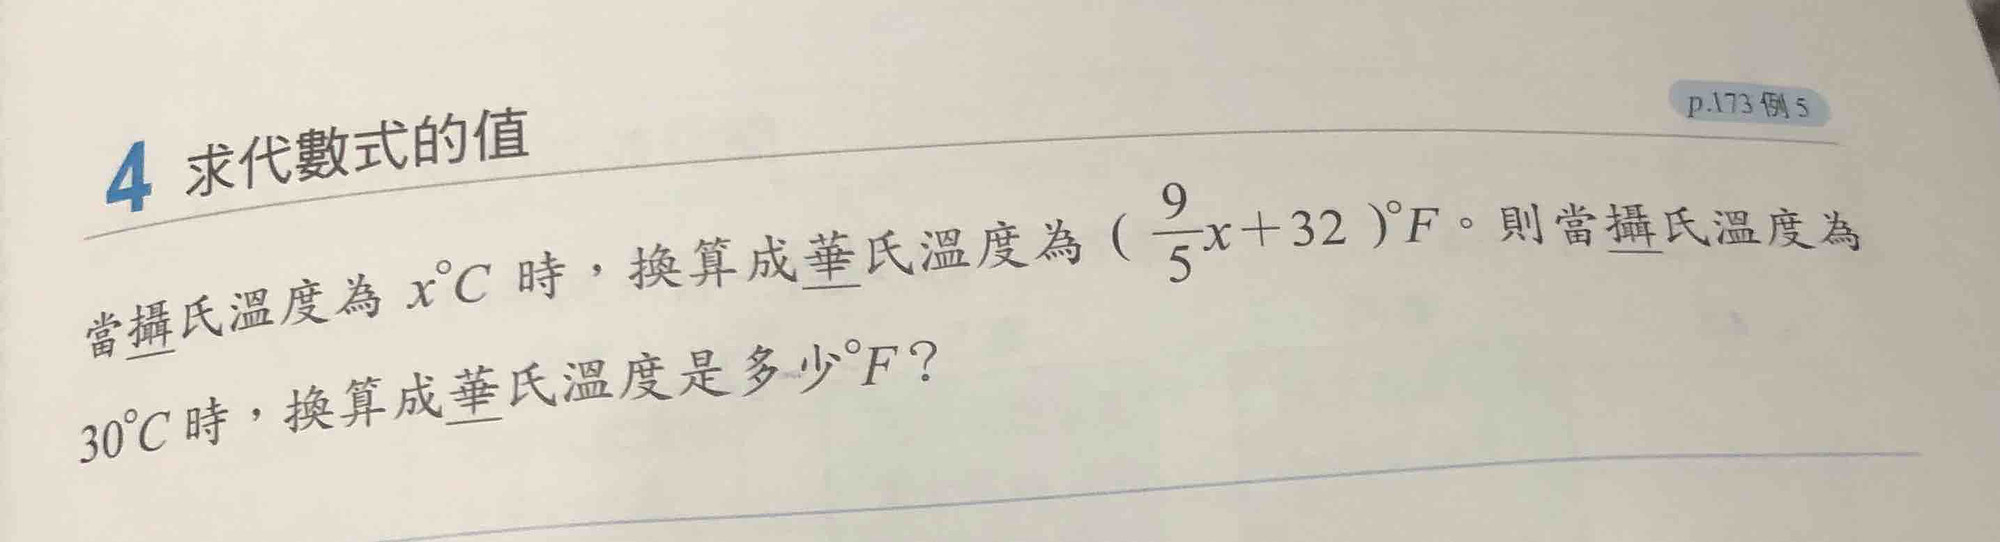 p.173 例 5
4 求代數式的值
當攝氏溫度為 x°C 時，換算成華氏溫度為 ( 9/5 x+32 )°F。則當攝氏溫度為
30°C 時，換算成華氏溫度是多少°F？